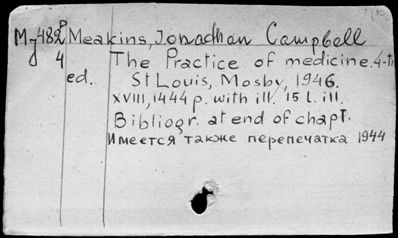 My482 Meakins, Jonathan Campbell
4 The Practice of medicine. 4-th
ed. St Louis, Mosby, 1946.
XVIII, 1444 p. with ill. 15 l. ill.
Bibliogr. at end of chapt.
Имеется также перепечатка 1944